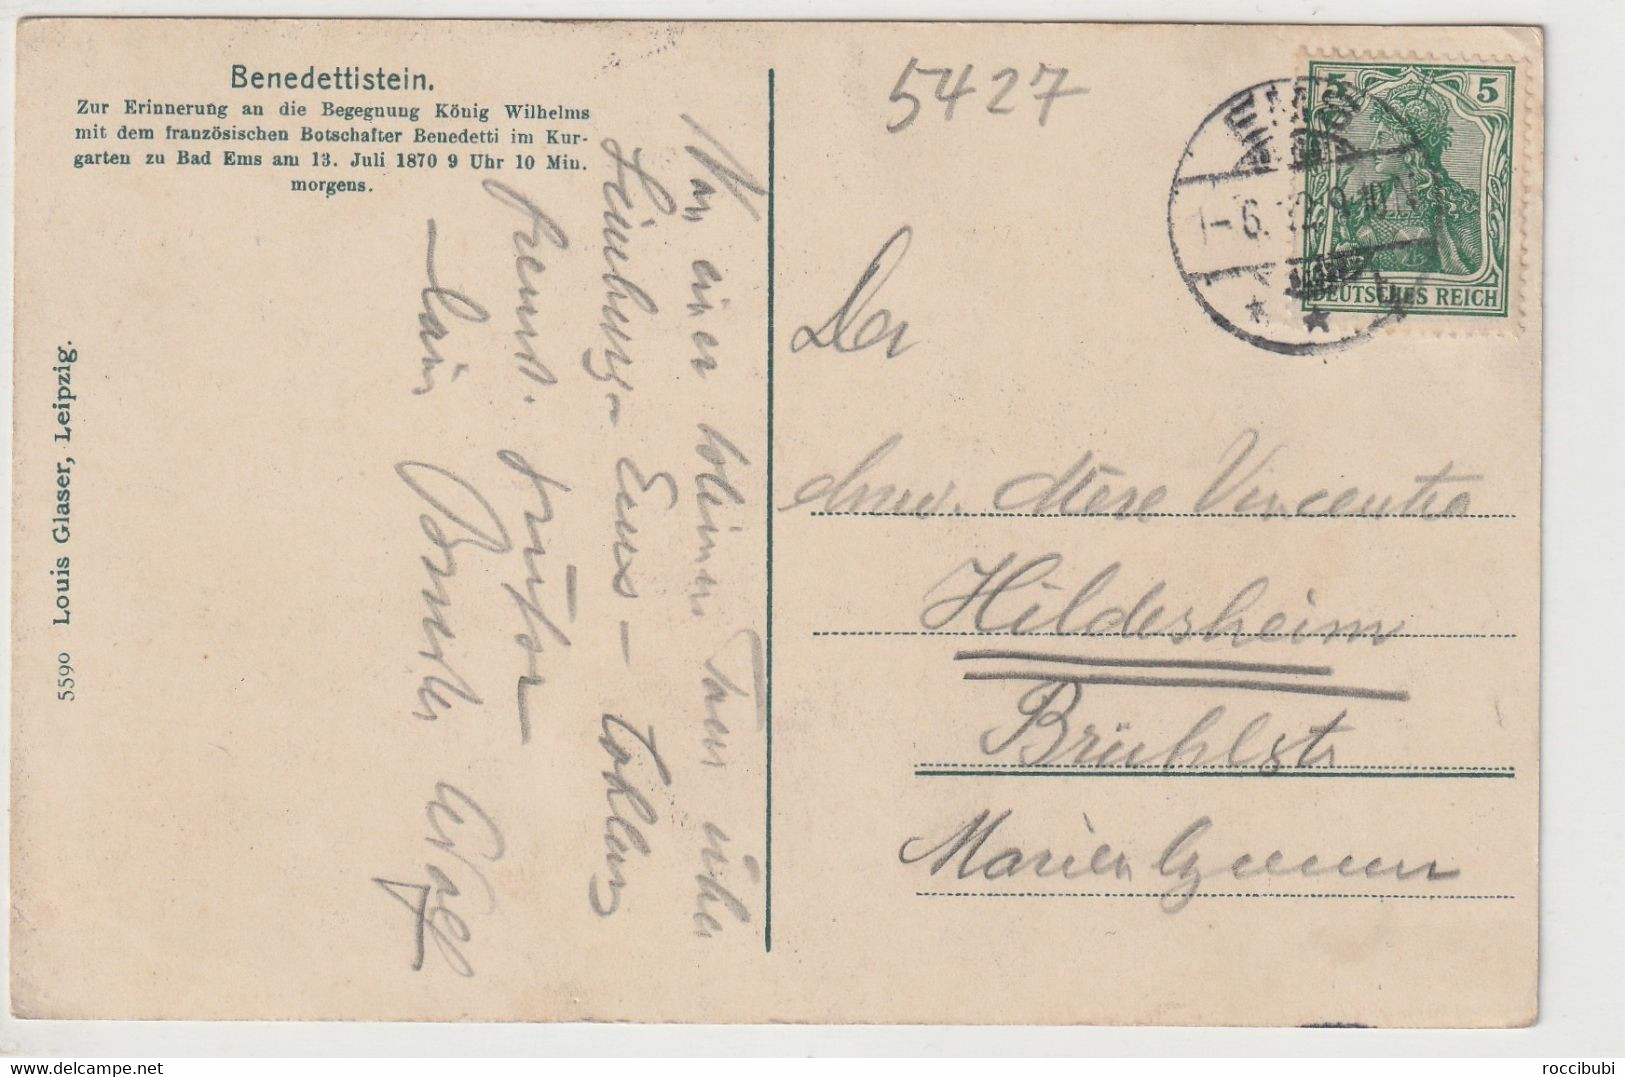 Benedettistein.
Zur Erinnerung an die Begegnung König Wilhelms
mit dem französischen Botschafter Benedetti im Kur-
garten zu Bad Ems am 13. Juli 1870 9 Uhr 10 Min.
morgens.
5590 Louis Glaser, Leipzig.
Von einer kleinen Tour über
Limburg - Ems - Coblenz
freundl.
5427
5 5
DEUTSCHES REICH
-6. 12. 9-10 N
Der
Mère Vincentia
Hildesheim
Brühlstr
Marien
roccibubi